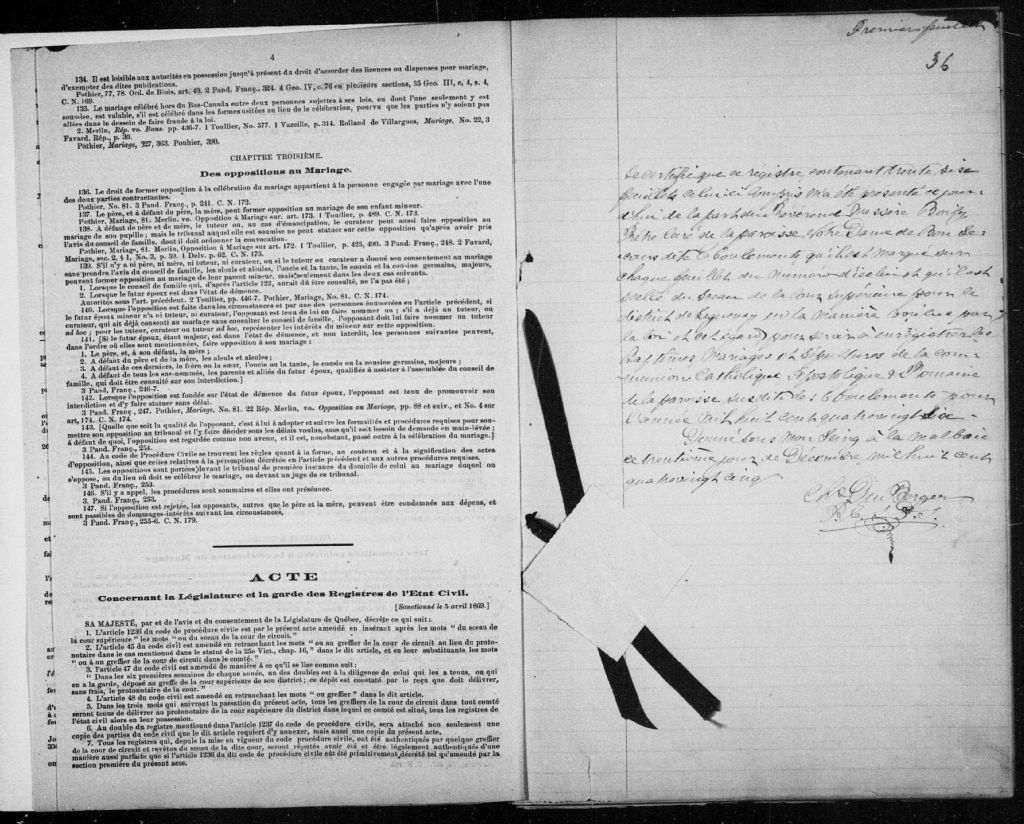 4
134. Il est loisible aux autorités en possession jusqu'à présent du droit d'accorder des licences ou dispenses pour mariage,
d'exempter des dites publications.
Pothier, 77, 78. Ord. de Blois, art. 40. 2 Pand. Franç., 324. 4 Geo. IV, c. 76 en plusieurs sections, 35 Geo. III, c. 4, s. 4,
C. N. 169.
135. Le mariage célébré hors du Bas-Canada entre deux personnes sujettes à ses lois, ou dont l'une seulement y est
soumise, est valable, s'il est célébré dans les formes usitées au lieu de la célébration, pourvu que les parties n'y soient pas
allées dans le dessein de faire fraude à la loi.
2. Merlin, Rép. vo. Bans. pp. 436-7. 1 Toullier, No. 577. 1 Vazeille, p. 314. Rolland de Villargues, Mariage, No. 22, 3
Favard. Rép., p. 30.
Pothier, Mariage, 327, 363. Pouhier, 390.
CHAPITRE TROISIÈME.
Des oppositions au Mariage.
136. Le droit de former opposition à la célébration du mariage appartient à la personne engagée par mariage avec l'une
des deux parties contractantes.
Pothier, No. 81. 3 Pand. Franç., p. 241. C. N. 172.
137. Le père, et à défaut du père, la mère, peut former opposition au mariage de son enfant mineur.
Pothier, Mariage, 81. Merlin, vo. Opposition à Mariage sur. art. 173. 1 Toullier, p. 489. C. N. 173.
138. A défaut de père et de mère, le tuteur ou, au cas d'émancipation, le curateur peut aussi faire opposition au
mariage de son pupille; mais le tribunal auquel elle est soumise ne peut statuer sur cette opposition qu'après avoir pris
l'avis du conseil de famille, dont il doit ordonner la convocation.
Pothier, Mariage, 81. Merlin, Opposition à Mariage sur art. 172. 1 Toullier, p. 425, 490. 3 Pand. Franç., 248. 2 Favard,
Mariage, sec. 2, § 1, No. 3, p. 59. 1 Delv. p. 62. C. N. 175.
139. S'il n'y a ni père, ni mère, ni tuteur, ni curateur, ou si le tuteur ou curateur a donné son consentement au mariage
sans prendre l'avis du conseil de famille, les aïeuls et aïeules, l'oncle et la tante, le cousin et la cousine germains, majeurs,
peuvent former opposition au mariage de leur parent mineur, mais seulement dans les deux cas suivants.
1. Lorsque le conseil de famille qui, d'après l'article 122, aurait dû être consulté, ne l'a pas été;
2. Lorsque le futur époux est dans l'état de démence.
Autorités sous l'art. précédent. 2 Toullier, pp. 446-7. Pothier, Mariage, No. 81. C. N. 174.
140. Lorsque l'opposition est faite dans les circonstances et par une des personnes énumérées en l'article précédent, si
le futur époux mineur n'a ni tuteur, ni curateur, l'opposant est tenu de lui en faire nommer un; s'il a déjà un tuteur, ou
curateur, qui ait déjà consenti au mariage sans consulter le conseil de famille, l'opposant doit lui faire nommer un tuteur
ad hoc; pour les tuteur, curateur ou tuteur ad hoc, représenter les intérêts du mineur sur cette opposition.
141. [Si le futur époux, étant majeur, est dans l'état de démence, et non interdit, les personnes suivantes peuvent,
dans l'ordre où elles sont mentionnées, faire opposition à son mariage:
1. Le père, et, à son défaut, la mère;
2. A défaut du père et de la mère, les aïeuls et aïeules;
3. A défaut de ces derniers, le frère ou la sœur, l'oncle ou la tante, le cousin ou la cousine germains, majeurs;
4. A défaut de tous les sus-nommés, les parents et alliés du futur époux, qualifiés à assister à l'assemblée du conseil de
famille, qui doit être consulté sur son interdiction.]
3 Pand. Franç., 246-7.
142. Lorsque l'opposition est fondée sur l'état de démence du futur époux, l'opposant est tenu de promouvoir son
interdiction et d'y faire statuer sans délai.
3 Pand. Franç., 247. Pothier, Mariage, No. 81. 22 Rép. Merlin, vo. Opposition au Mariage, pp. 88 et suiv., et No. 4 sur
art. 174. C. N. 174.
143. [Quelle que soit la qualité de l'opposant, c'est à lui à adopter et suivre les formalités et procédures requises pour sou-
mettre son opposition au tribunal et l'y faire décider sous les délais voulus, sans qu'il soit besoin de demande en main-levée;
à défaut de quoi, l'opposition est regardée comme non avenue, et il est, nonobstant, passé outre à la célébration du mariage.]
3 Pand. Franç., 254.
144. Au Code de Procédure Civile se trouvent les règles quant à la forme, au contenu et à la signification des actes
d'opposition, ainsi que celles relatives à la péremption décrétée en l'article précédent et aux autres procédures requises.
145. Les oppositions sont portées devant le tribunal de première instance du domicile de celui au mariage duquel on
s'oppose, ou du lieu où doit se célébrer le mariage, ou devant un juge de ce tribunal.
3 Pand. Franç., 253.
146. S'il y a appel, les procédures sont sommaires et elles ont préséance.
3 Pand. Franç., 253.
147. Si l'opposition est rejetée, les opposants, autres que le père et la mère, peuvent être condamnés aux dépens, et
sont passibles de dommages-intérêts suivant les circonstances,
3 Pand. Franç., 255-6. C. N. 179.
ACTE
Concernant la Législature et la garde des Registres de l'Etat Civil.
[Sanctionné le 5 avril 1869.]
SA MAJESTÉ, par et de l'avis et du consentement de la Législature de Québec, décrète ce qui suit:
1. L'article 1236 du code de procédure civile est par le présent acte amendé en insérant après les mots "du sceau de
la cour supérieure" les mots "ou du sceau de la cour de circuit."
2. L'article 45 du code civil est amendé en retranchant les mots "ou au greffier de la cour de circuit au lieu du proto-
notaire dans le cas mentionné dans le statut de la 25e Vict., chap. 16," dans le dit article, et en leur substituant les mots
"ou à un greffier de la cour de circuit dans le comté."
3. l'article 47 du code civil est amendé de manière à ce qu'il se lise comme suit:
"Dans les six premières semaines de chaque année, un des doubles est à la diligence de celui qui les a tenus, ou qui
en a la garde, déposé au greffe de la cour supérieure de son district; ce dépôt est constaté par le reçu que doit délivrer,
sans frais, le protonotaire de la cour."
4. L'article 48 du code civil est amendé en retranchant les mots "ou greffier" dans le dit article.
5. Dans les trois mois qui suivront la passation du présent acte, tous les greffiers de la cour de circuit dans tout comté
seront tenus de délivrer au protonotaire de la cour supérieure du district dans lequel ce comté est situé, tous les registres de
l'état civil alors en leur possession.
6. Au double du registre mentionné dans l'article 1237 du code de procédure civile, sera attaché non seulement une
copie des parties du code civil que le dit article requiert d'y annexer, mais aussi une copie du présent acte.
7. Tous les registres qui, depuis la mise en vigueur du code de procédure civile, ont été authentiqués par quelque greffier
de la cour de circuit et revêtus du sceau de la dite cour, seront réputés avoir été et être légalement authentiqués d'une
manière aussi parfaite que si l'article 1236 du dit code de procédure civile eût été primitivement décrété tel qu'amendé par la
section première du présent acte.
Premier feuillet
36
Je certifie que ce registre contenant trente six
feuillets celui ci compris m'a été présenté ce jour
d'hui de la part du Révérend Messire Boily
Prêtre Curé de la paroisse Notre Dame de Bon Se-
cours dite Eboulements qu'il est marqué sur
chaque feuillet du numéro d'icelui et qu'il est
scellé du sceau de la Cour Supérieure pour ce
district de Saguenay en la manière voulue par
la loi et cet égard pour servir à enregistrer les
Baptêmes Mariages et Sépultures de la com-
munion Catholique Apostolique & Romaine
de la paroisse susdite des Eboulements pour
l'année mil huit cent quatrevingt six
Donné sous mon seing à la Malbaie
ce trentième jour de Décembre mil huit cent
quatrevingt cinq
Chs Du Berger
P. C. S. D. S.